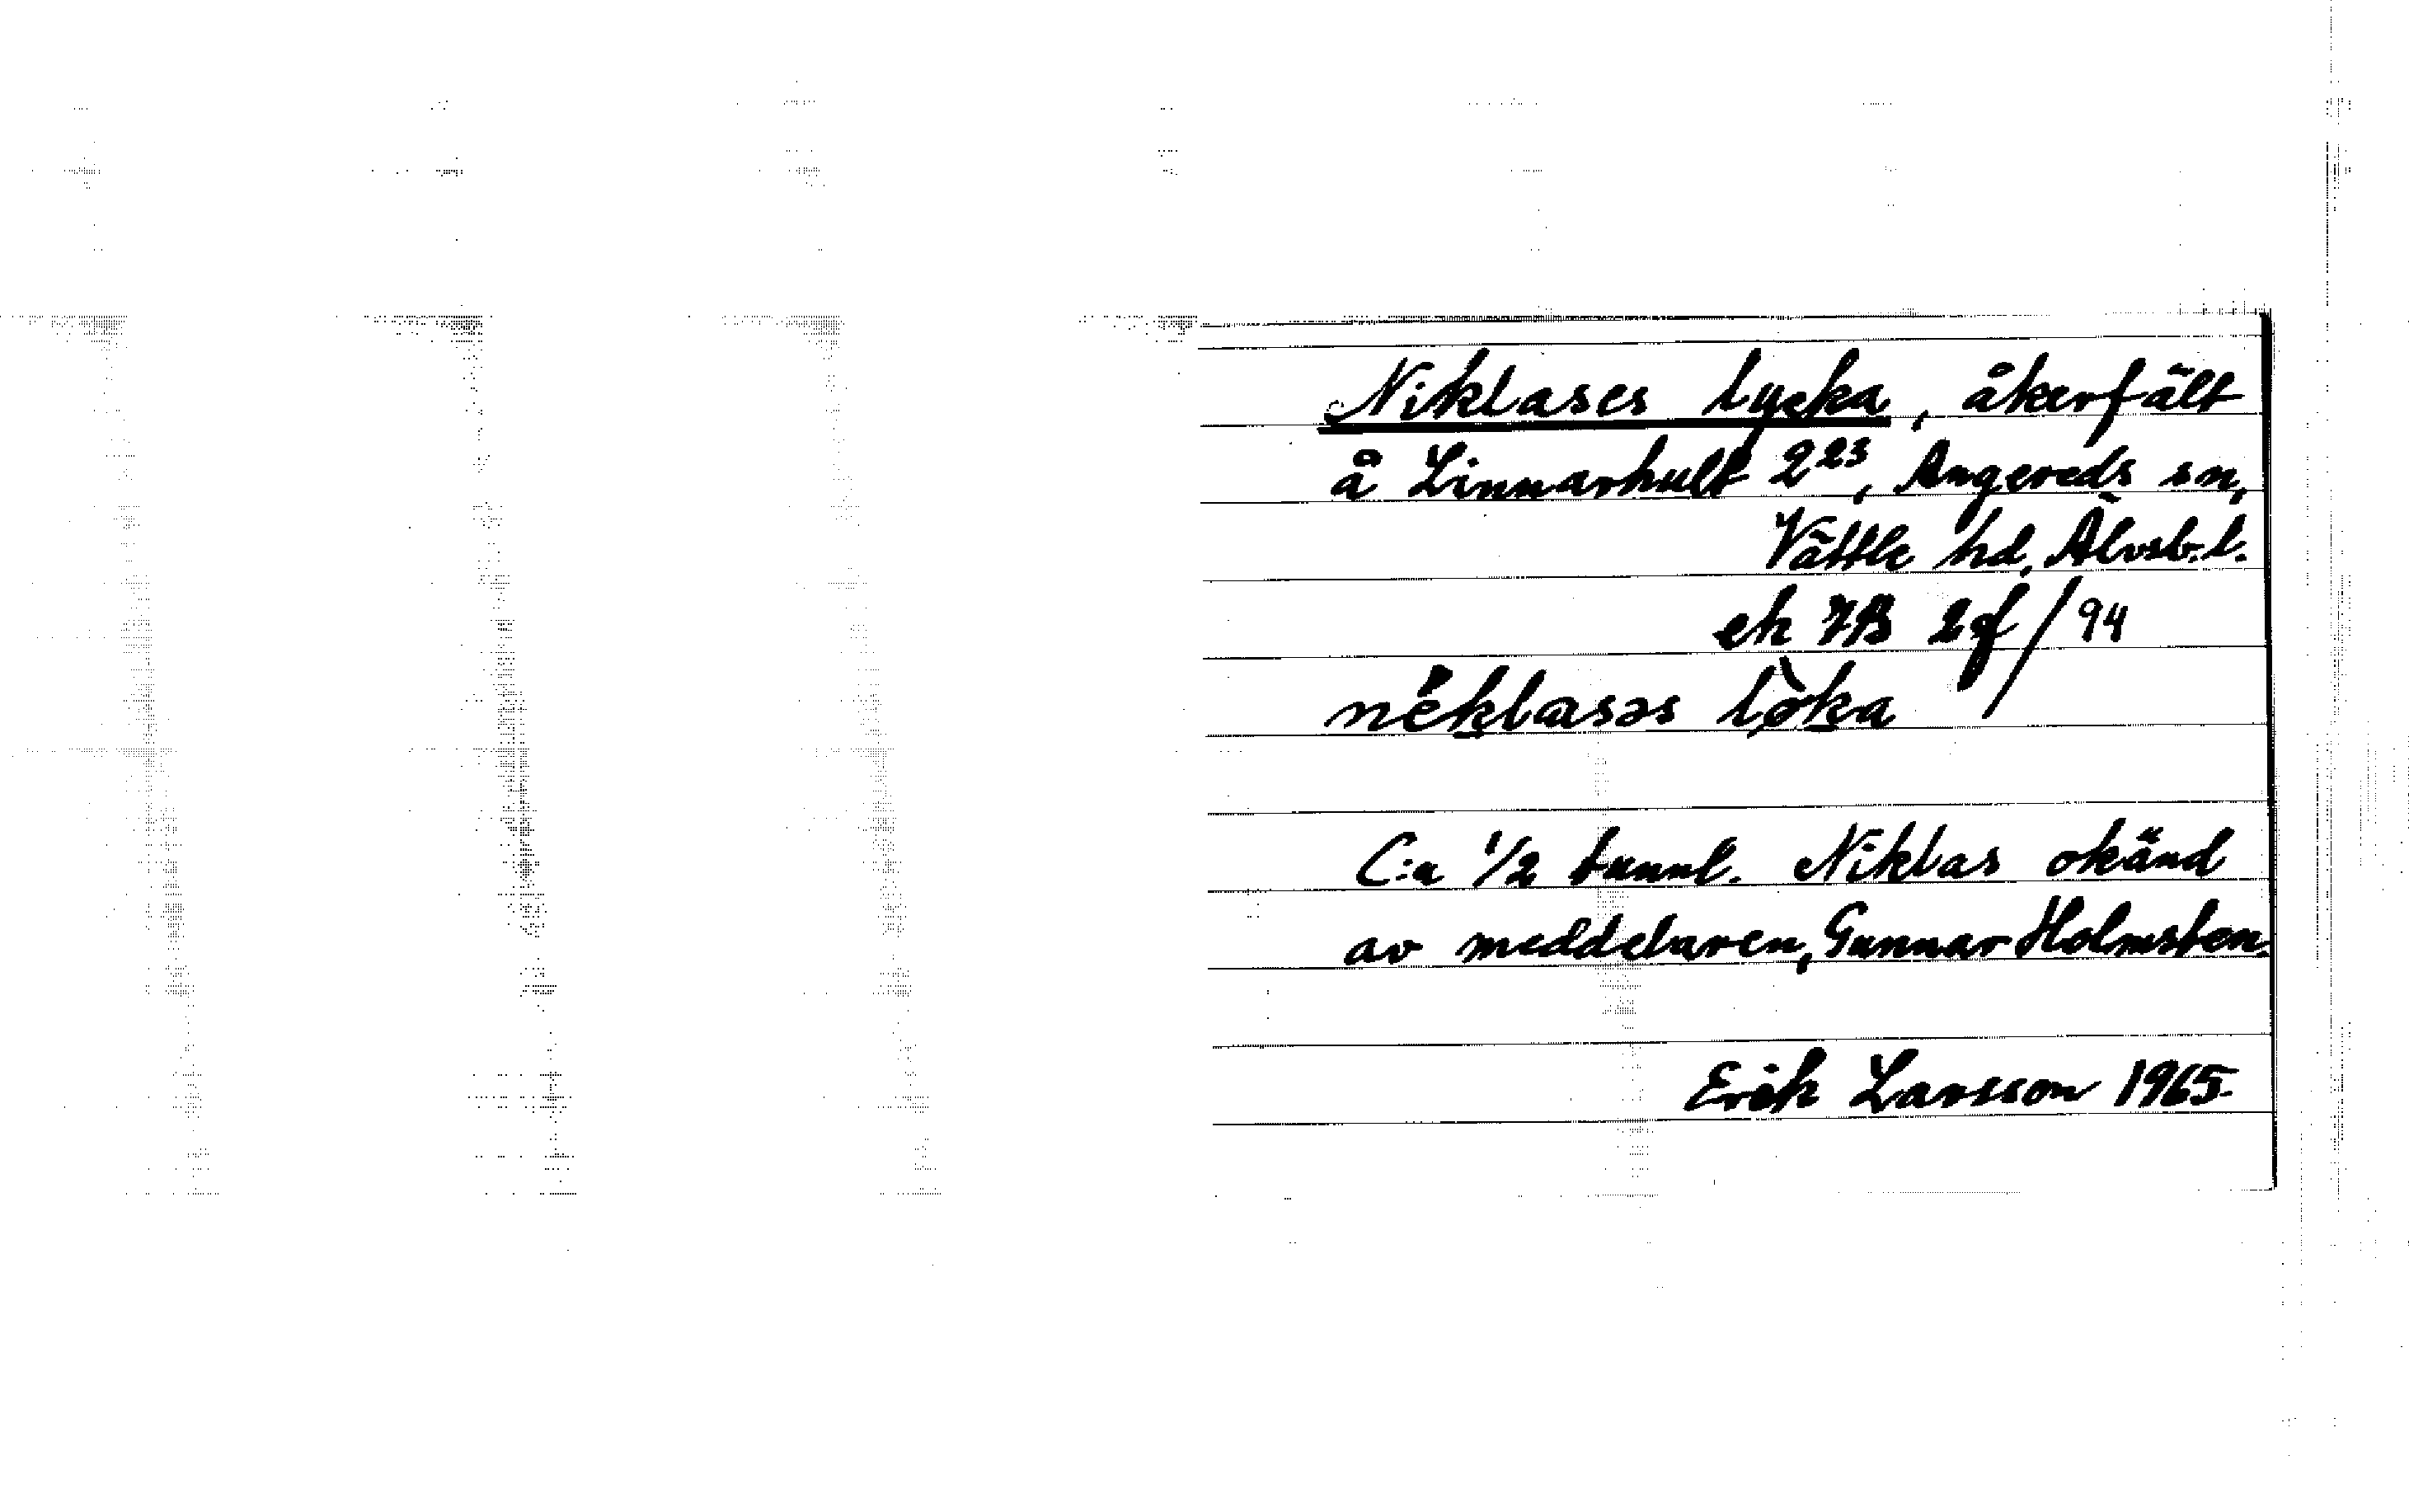 Niklases lycka, åkerfält
å Linnarhult 2²³, Angereds sn,
Vättle hd, Älvsb. l.
ek 7B 2gf/94
néklasəs lø̀ka
C:a 1/2 tunnl. Niklas okänd
av meddelaren, Gunnar Holmsten.
Erik Larsson 1965.